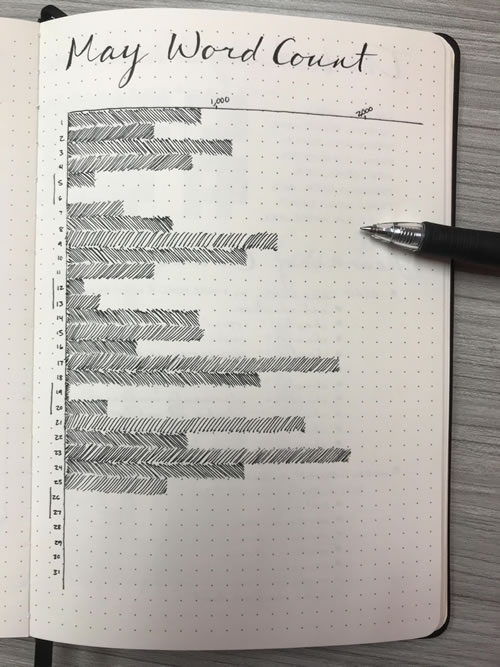 May Word Count
1,000 2,000
1
2
3
4
5
6
7
8
9
10
11
12
13
14
15
16
17
18
19
20
21
22
23
24
25
26
27
28
29
30
31